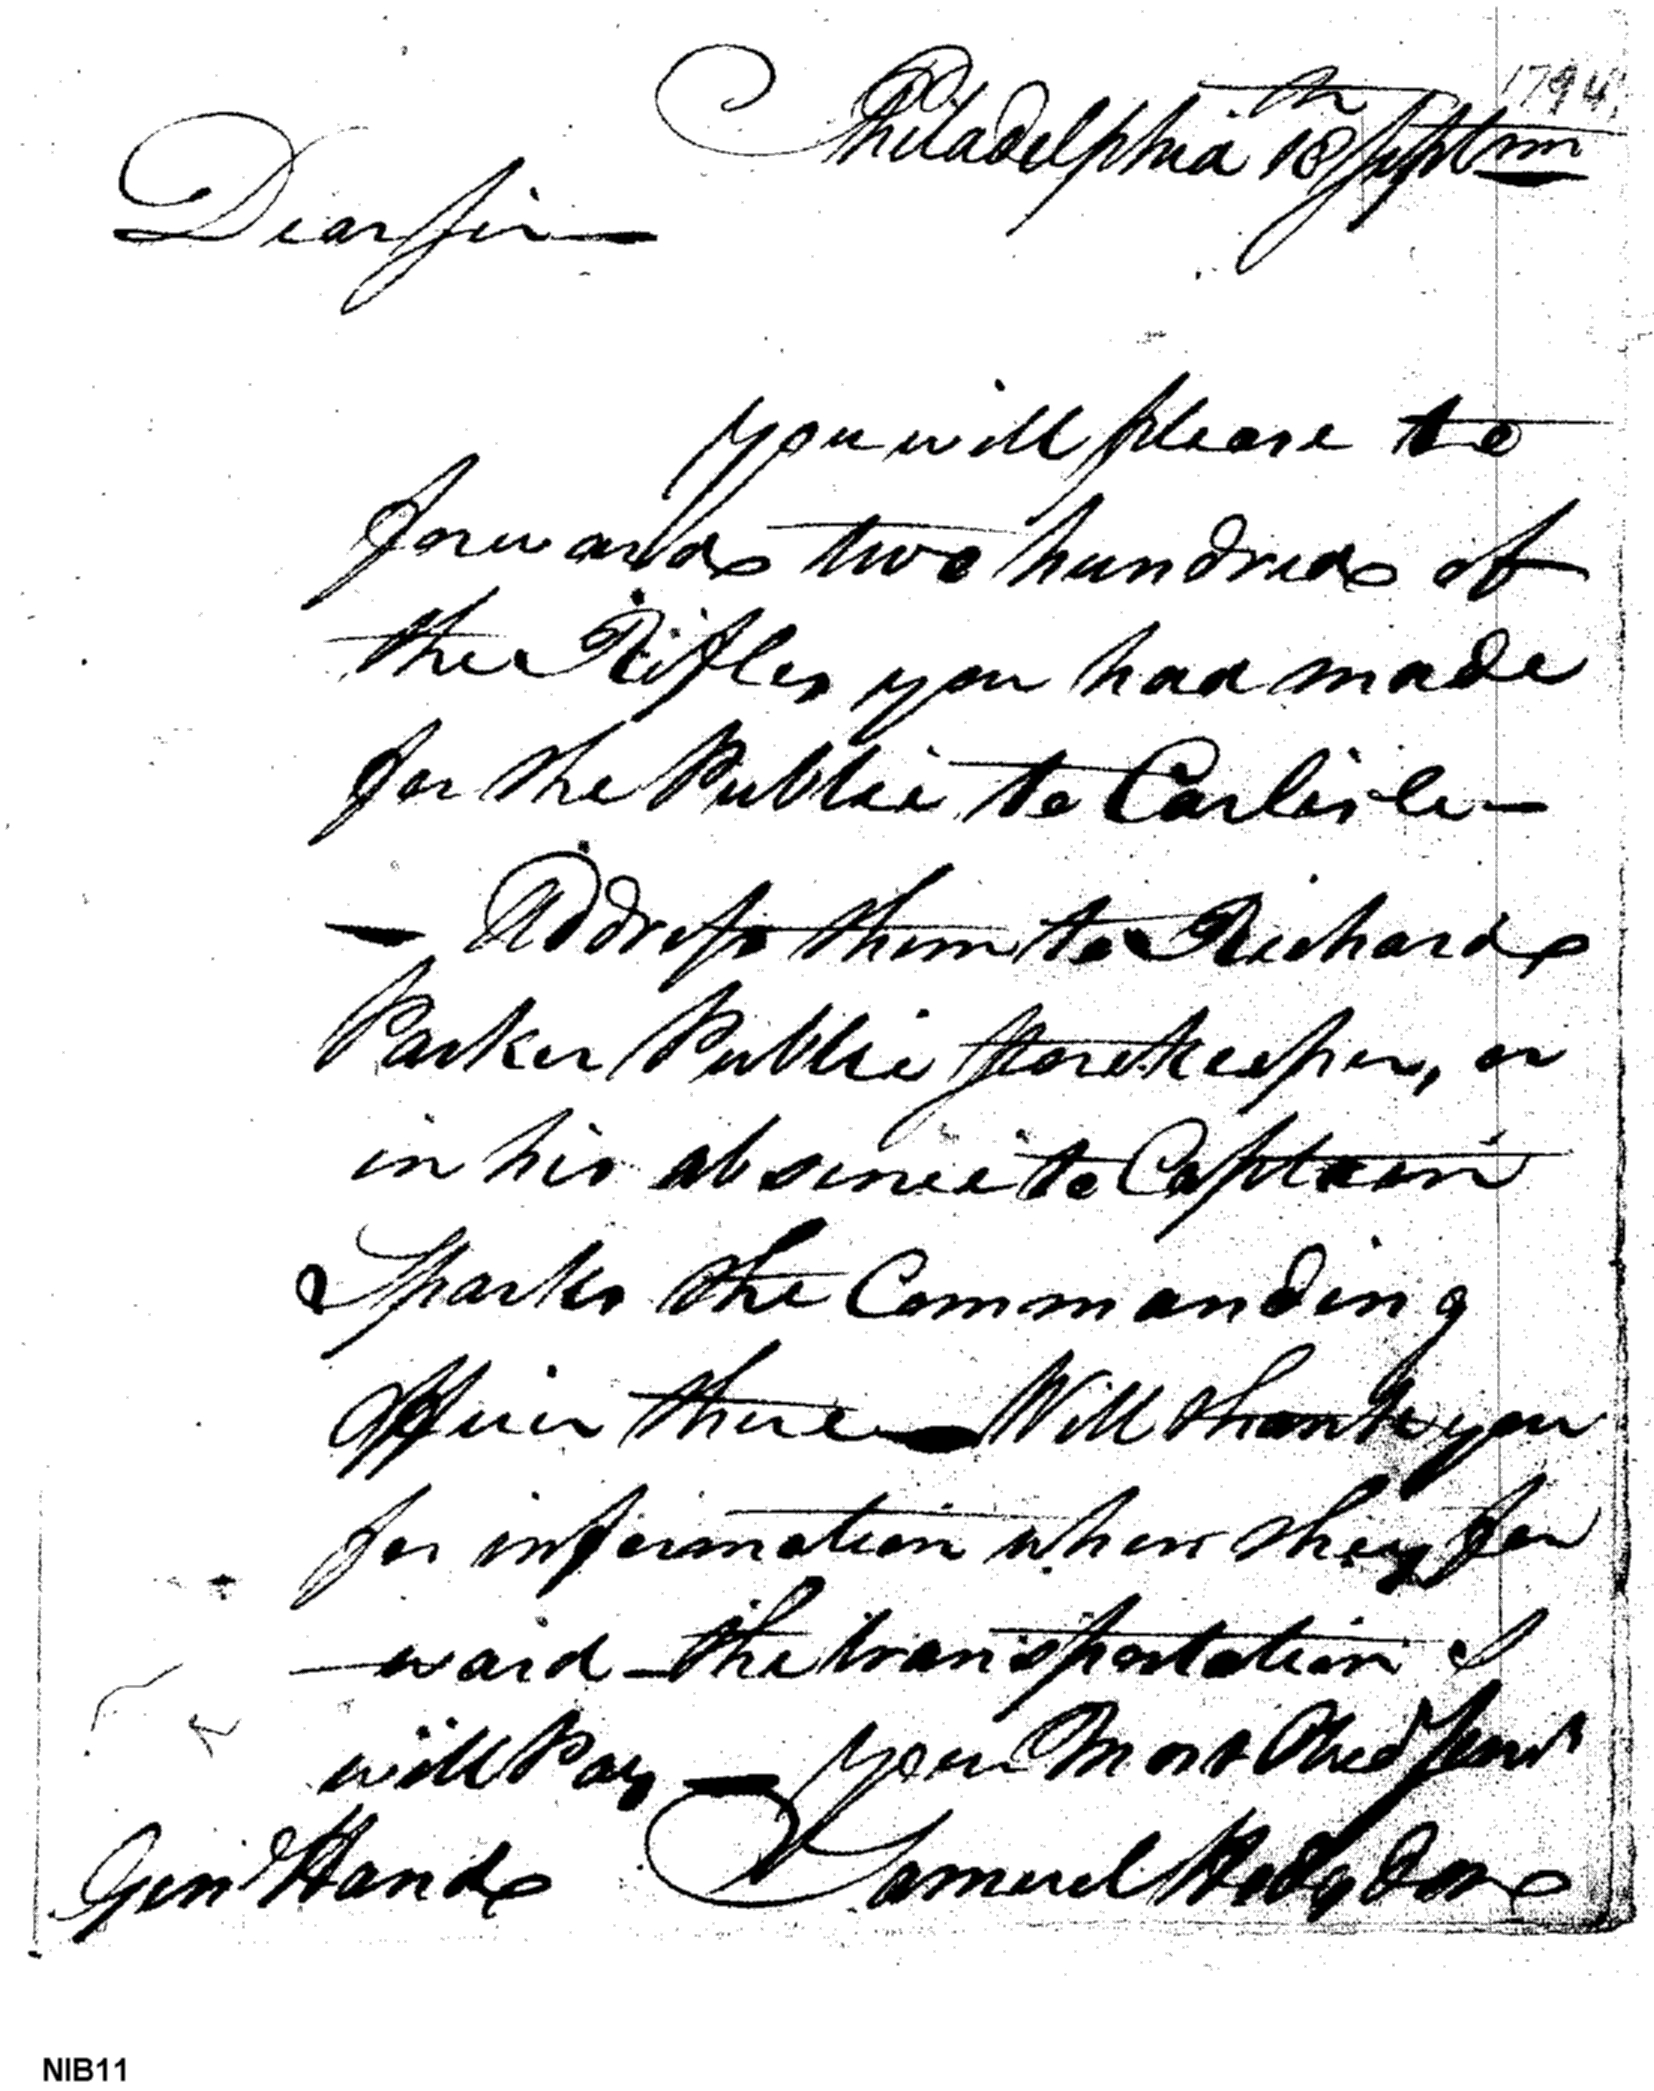 1794
Philadelphia 18th Septem
Dear Sir
You will please to
forward two hundred of
the Rifles you had made
for the Public to Carlisle —
— Address them to Richard
Parker Public Storekeeper, or
in his absence to Captain
Sparks the Commanding
Officer there — Will thank you
for information when they for
ward — the transportation I
will Pay — Your Most Obed Servt
Genl Hand Samuel Hodgdon
NIB11